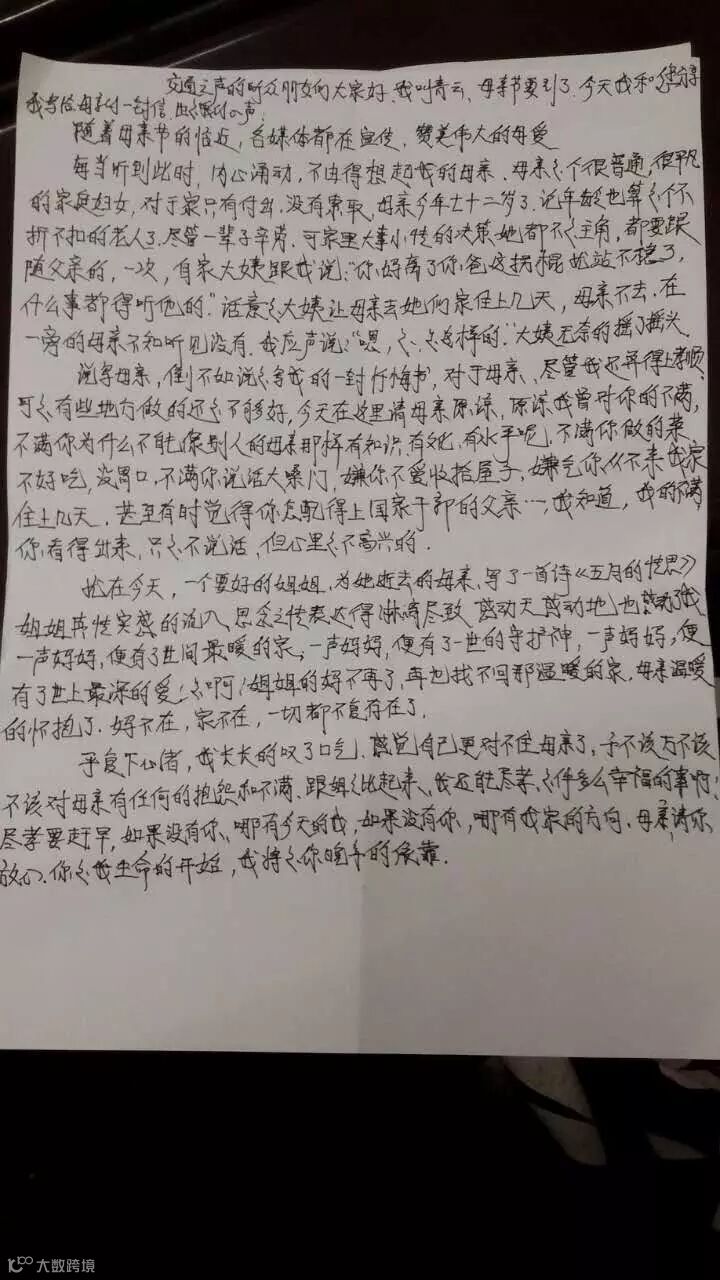 交通之声的听众朋友们大家好、我叫青云、母亲节要到了.今天我和您分享
我写给母亲的一封信.
随着母亲节的临近，各媒体都在宣传、赞美伟大的母爱
每当听到此时，内心涌动，不由得想起我的母亲、母亲是个很普通，很平凡
的家庭妇女，对于家只有付出.没有索取、母亲今年七十二岁了.论年龄也算是个不
折不扣的老人了.尽管一辈子辛劳.可家里大事小情的决策她都不是主角，都要跟
随父亲的，一次，自家大姨跟我说："你妈离了你爸这拐棍就站不稳了，
什么事都得听他的."话意是大姨让母亲去她们家住上几天，母亲不去.在
一旁的母亲不知听见没有.我应声说："嗯，是.是这样的."大姨无奈的摇了摇头.
说写母亲，倒不如说是写我的一封忏悔书，对于母亲、尽管我还算得上孝顺.
可是有些地方做的还是不够好，今天在这里请母亲原谅、原谅我曾对你的不满，
不满你为什么不能像别人的母亲那样有知识.有文化.有水平呢，不满你做的菜
不好吃，没胃口，不满你说话大嗓门，嫌你不爱收拾屋子，嫌气你从不来我家
住上几天.甚至有时觉得你怎配得上国家干部的父亲…，我知道，我的不满
你看得出来，只是不说话，但心里是不高兴的.
就在今天，一个要好的姐姐，为她逝去的母亲、写了一首诗《五月的情思》
姐姐真情实感的流入、思念之情表达得淋漓尽致 感动天感动地也感动了我
一声妈妈，便有了世间最暖的家，一声妈妈，便有了一世的守护神，一声妈妈，便
有了世上最深的爱！是啊！姐姐的妈不再了，再也找不回那温暖的家，母亲温暖
的怀抱了.妈不在，家不在，一切都不复存在了.
平复下心绪，我长长的叹了口气.感觉自己更对不住母亲了，千不该万不该
不该对母亲有任何的抱怨和不满、跟姐姐比起来、我还能尽孝、是件多么幸福的事啊！
尽孝要赶早，如果没有你、哪有今天的我，如果没有你，哪有我家的方向.母亲，请你
放心.你是我生命的开始，我将是你晚年的依靠.
大数跨境